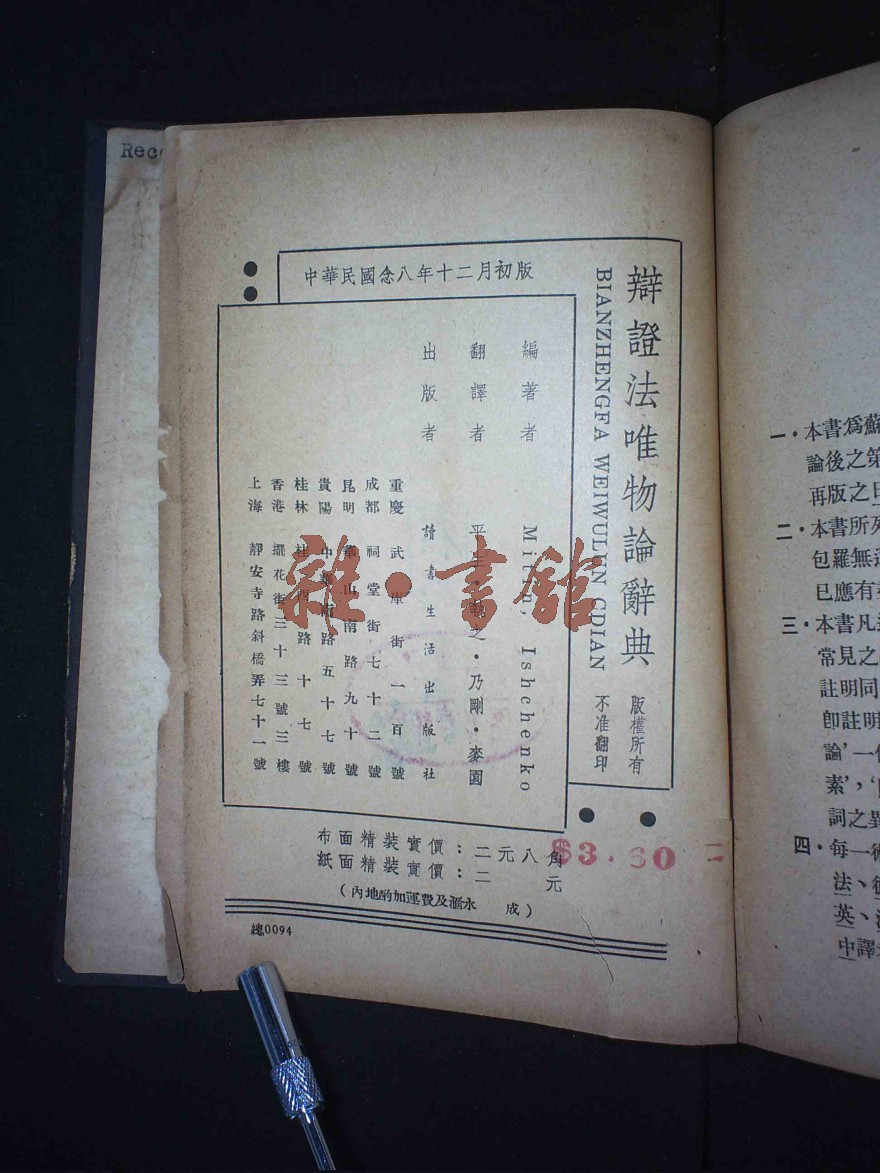 Reco
中華民國念八年十二月初版
辯證法唯物論辭典
BIANZHENGFA WEIWULUN CDIAN
版權所有
不准翻印
編著者 Mitin, Ishchenko
翻譯者 平生・執之・乃剛・麥園
出版者 讀書生活出版社
重慶 武庫街一百號
成都 祠堂街七十二號
昆明 華山南路九十號
貴陽 中華南路五十七號
桂林 桂西路十七號
香港 擺花街三十三號三樓
上海 靜安寺路斜橋弄七十一號
雜・書館
布面精裝實價：二元八角
紙面精裝實價：二元
$3.60
（內地酌加運費及滙水 成）
總0094
一・本書爲蘇
論後之第
再版之日
二・本書所列
包羅無遺
已應有
三・本書凡
常見之
註明同
卽註明
論’一
素’，
詞之異
四・每一術
法、
英、
中譯